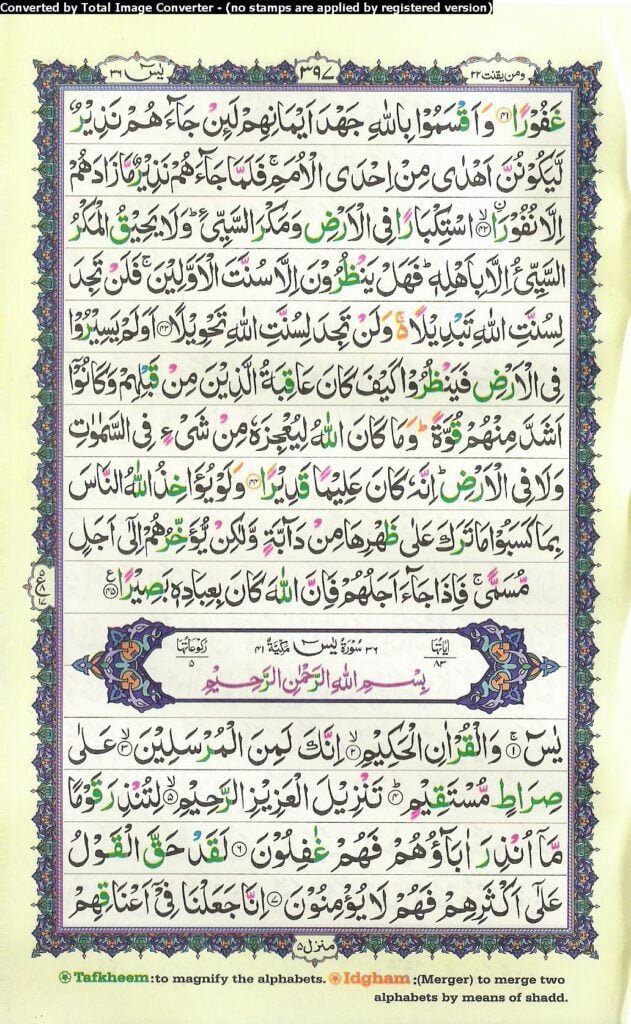 Converted by Total Image Converter - (no stamps are applied by registered version)
يٰسٓ ٣٦
٣٩٧
ومن يقنت ٢٢
غَفُوْرًا ﴿۴۱﴾ وَاَقْسَمُوْا بِاللّٰهِ جَهْدَ اَيْمَانِهِمْ لَئِنْ جَآءَهُمْ نَذِيْرٌ
لَّيَكُوْنُنَّ اَهْدٰى مِنْ اِحْدَى الْاُمَمِ ۚ فَلَمَّا جَآءَهُمْ نَذِيْرٌ مَّا زَادَهُمْ
اِلَّا نُفُوْرًا ۙ﴿۴۲﴾ اسْتِكْبَارًا فِى الْاَرْضِ وَمَكْرَ السَّيِّئِ ؕ وَلَا يَحِيْقُ الْمَكْرُ
السَّيِّئُ اِلَّا بِاَهْلِهٖ ؕ فَهَلْ يَنْظُرُوْنَ اِلَّا سُنَّتَ الْاَوَّلِيْنَ ۚ فَلَنْ تَجِدَ
لِسُنَّتِ اللّٰهِ تَبْدِيْلًا ۚ۬ وَلَنْ تَجِدَ لِسُنَّتِ اللّٰهِ تَحْوِيْلًا ﴿۴۳﴾ اَوَلَمْ يَسِيْرُوْا
فِى الْاَرْضِ فَيَنْظُرُوْا كَيْفَ كَانَ عَاقِبَةُ الَّذِيْنَ مِنْ قَبْلِهِمْ وَكَانُوْٓا
اَشَدَّ مِنْهُمْ قُوَّةً ؕ وَمَا كَانَ اللّٰهُ لِيُعْجِزَهٗ مِنْ شَىْءٍ فِى السَّمٰوٰتِ
وَلَا فِى الْاَرْضِ ؕ اِنَّهٗ كَانَ عَلِيْمًا قَدِيْرًا ﴿۴۴﴾ وَلَوْ يُؤَاخِذُ اللّٰهُ النَّاسَ
بِمَا كَسَبُوْا مَا تَرَكَ عَلٰى ظَهْرِهَا مِنْ دَآبَّةٍ وَّلٰكِنْ يُّؤَخِّرُهُمْ اِلٰٓى اَجَلٍ
مُّسَمًّى ۚ فَاِذَا جَآءَ اَجَلُهُمْ فَاِنَّ اللّٰهَ كَانَ بِعِبَادِهٖ بَصِيْرًا ﴿۴۵﴾
اٰيَاتُهَا ٨٣
٣٦ سُوْرَةُ يٰسٓ مَكِّيَّةٌ ٤١
رُكُوْعَاتُهَا ٥
بِسْمِ اللّٰهِ الرَّحْمٰنِ الرَّحِيْمِ
يٰسٓ ۚ﴿۱﴾ وَالْقُرْاٰنِ الْحَكِيْمِ ۙ﴿۲﴾ اِنَّكَ لَمِنَ الْمُرْسَلِيْنَ ۙ﴿۳﴾ عَلٰى
صِرَاطٍ مُّسْتَقِيْمٍ ؕ﴿۴﴾ تَنْزِيْلَ الْعَزِيْزِ الرَّحِيْمِ ۙ﴿۵﴾ لِتُنْذِرَ قَوْمًا
مَّآ اُنْذِرَ اٰبَآؤُهُمْ فَهُمْ غٰفِلُوْنَ ﴿۶﴾ لَقَدْ حَقَّ الْقَوْلُ
عَلٰٓى اَكْثَرِهِمْ فَهُمْ لَا يُؤْمِنُوْنَ ﴿۷﴾ اِنَّا جَعَلْنَا فِىْٓ اَعْنَاقِهِمْ
منزل ٥
Tafkheem :to magnify the alphabets. Idgham :(Merger) to merge two
alphabets by means of shadd.